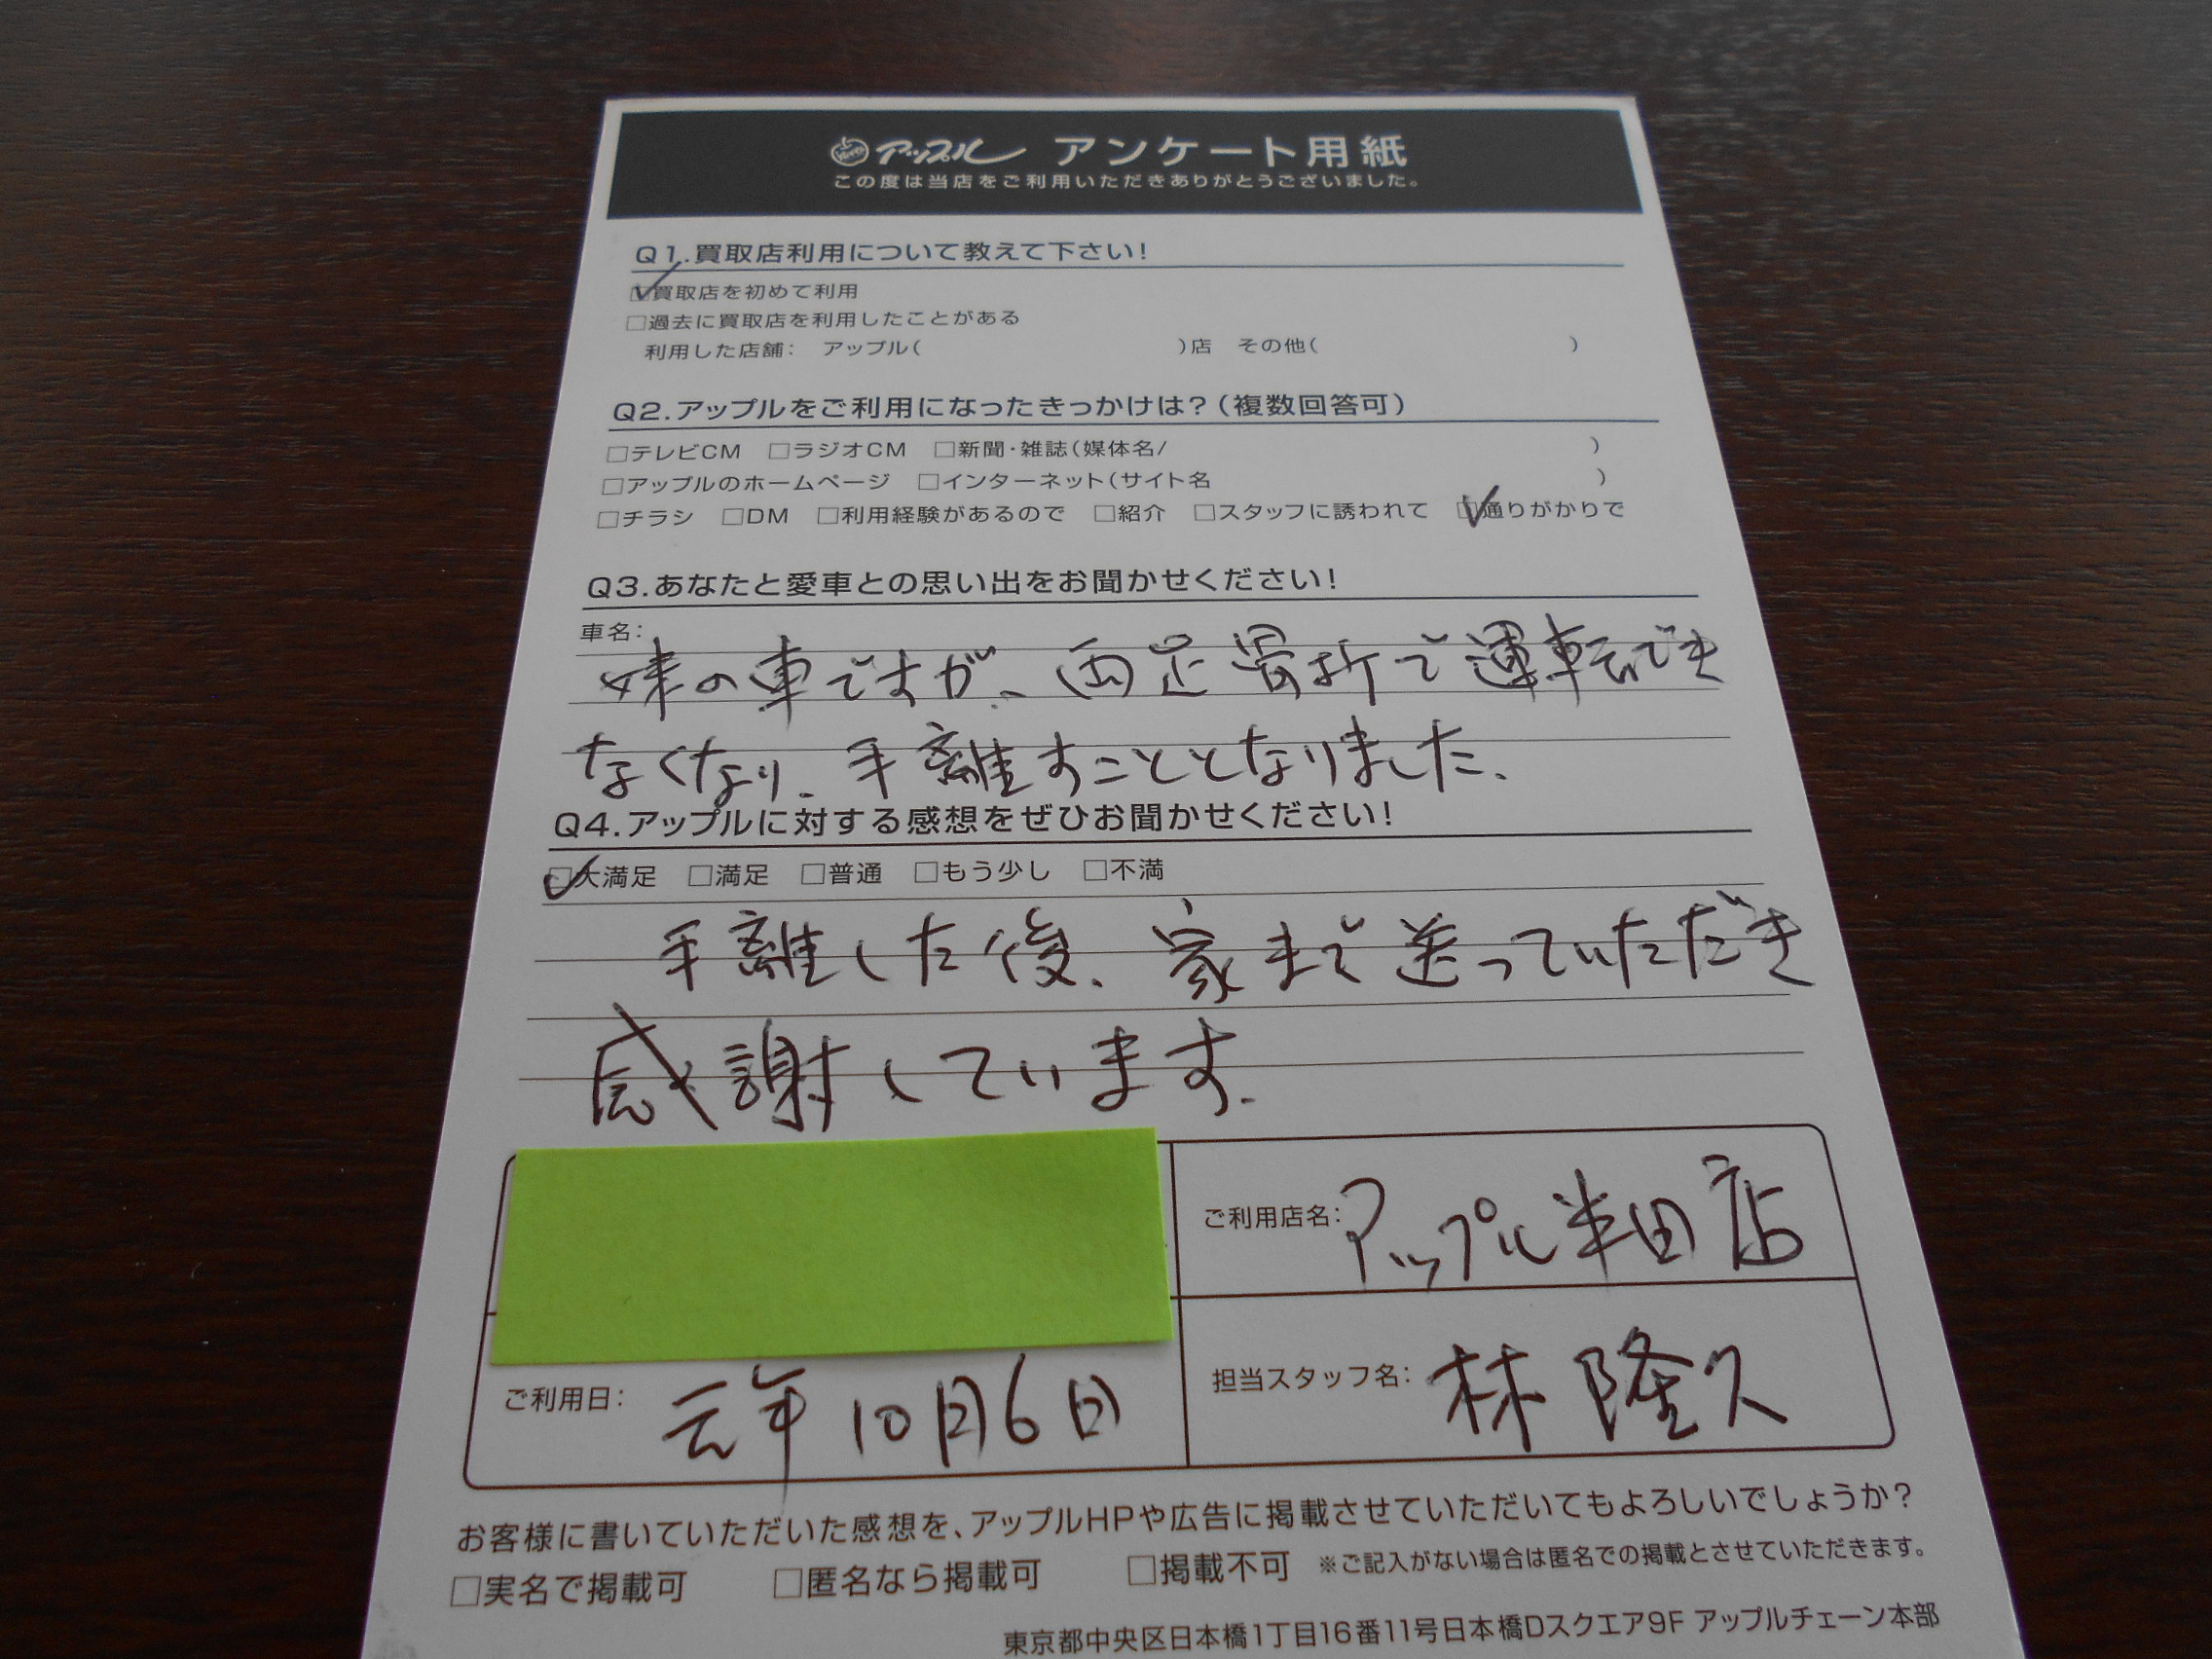 アップル アンケート用紙
この度は当店をご利用いただきありがとうございました。
Q1.買取店利用について教えて下さい!
☑買取店を初めて利用
□過去に買取店を利用したことがある
利用した店舗: アップル( )店 その他( )
Q2.アップルをご利用になったきっかけは?(複数回答可)
□テレビCM □ラジオCM □新聞・雑誌(媒体名/ )
□アップルのホームページ □インターネット(サイト名 )
□チラシ □DM □利用経験があるので □紹介 □スタッフに誘われて ☑通りがかりで
Q3.あなたと愛車との思い出をお聞かせください!
車名:
妹の車ですが、両足骨折で運転でき
なくなり、手離すこととなりました、
Q4.アップルに対する感想をぜひお聞かせください!
☑大満足 □満足 □普通 □もう少し □不満
手離した後、家まで送っていただき
感謝しています.
ご利用店名:アップル半田店
ご利用日: 元年10月6日
担当スタッフ名:林 隆久
お客様に書いていただいた感想を、アップルHPや広告に掲載させていただいてもよろしいでしょうか?
□実名で掲載可 □匿名なら掲載可 □掲載不可 ※ご記入がない場合は匿名での掲載とさせていただきます。
東京都中央区日本橋1丁目16番11号日本橋Dスクエア9F アップルチェーン本部